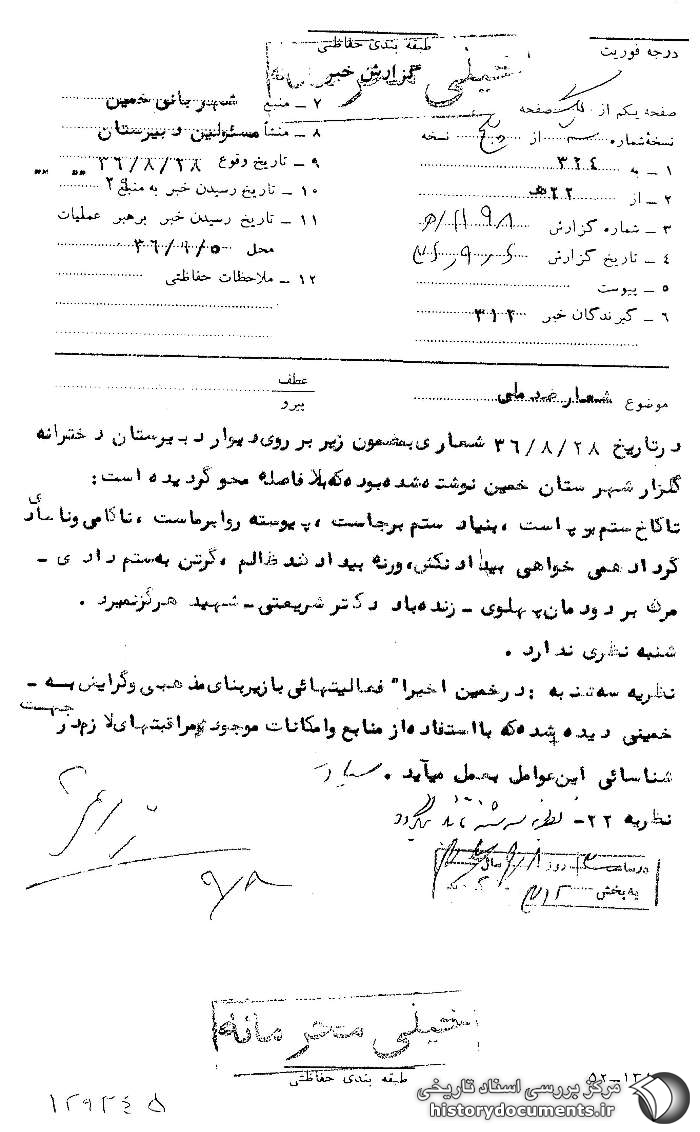 درجه فوریت
طبقه بندی حفاظتی
خیلی محرمانه
گزارش خبر
صفحه یکم از یک صفحه
نسخهٔ شماره سه از پنج نسخه
۱ ـ به ۳۲۴
۲ ـ از ۲۲ هـ
۳ ـ شماره گزارش
۴ ـ تاریخ گزارش
۵ ـ پیوست
۶ ـ گیرندگان خبر ۳۱۲
۷ ـ منبع شهربانی خمین
۸ ـ منشأ مسئولین دبیرستان
۹ ـ تاریخ وقوع ۳۶/۸/۲۸
۱۰ ـ تاریخ رسیدن خبر به منبع
۱۱ ـ تاریخ رسیدن خبر برهبر عملیات
محل ۳۶/۹/۵
۱۲ ـ ملاحظات حفاظتی
موضوع شعار ضد ملی
عطف
پیرو
درتاریخ ۳۶/۸/۲۸ شعاری بمضمون زیر بر روی دیوار دبیرستان دخترانه
گلزار شهرستان خمین نوشته شده بوده که بلافاصله محو گردیده است:
تا کاخ ستم برپاست، بنیاد ستم برجاست، پیوسته روا برماست، ناکامی و ناشادی
گر داد همی خواهی بیداد نکش، ورنه بیداد کند ظالم، گر تن به ستم دادی ـ
مرگ بر دودمان پهلوی ـ زنده باد دکتر شریعتی ـ شهید هرگز نمیرد .
شنبه نظری ندارد .
نظریه سه شنبه : در خمین اخیرا" فعالیتهائی با زیربنای مذهبی و گرایش به ـ
خمینی دیده شده که با استفاده از منابع و امکانات موجود مراقبتهای لازم در جهت
شناسائی این عوامل بعمل میآید .
نظریه ۲۲- نظریه سه شنبه تائید میگردد
۹/۸
در ساعت روز سال
به بخش ۳۱۲
خیلی محرمانه
طبقه بندی حفاظتی
۱۲۹۲۴۵
مرکز بررسی اسناد تاریخی
historydocuments.ir